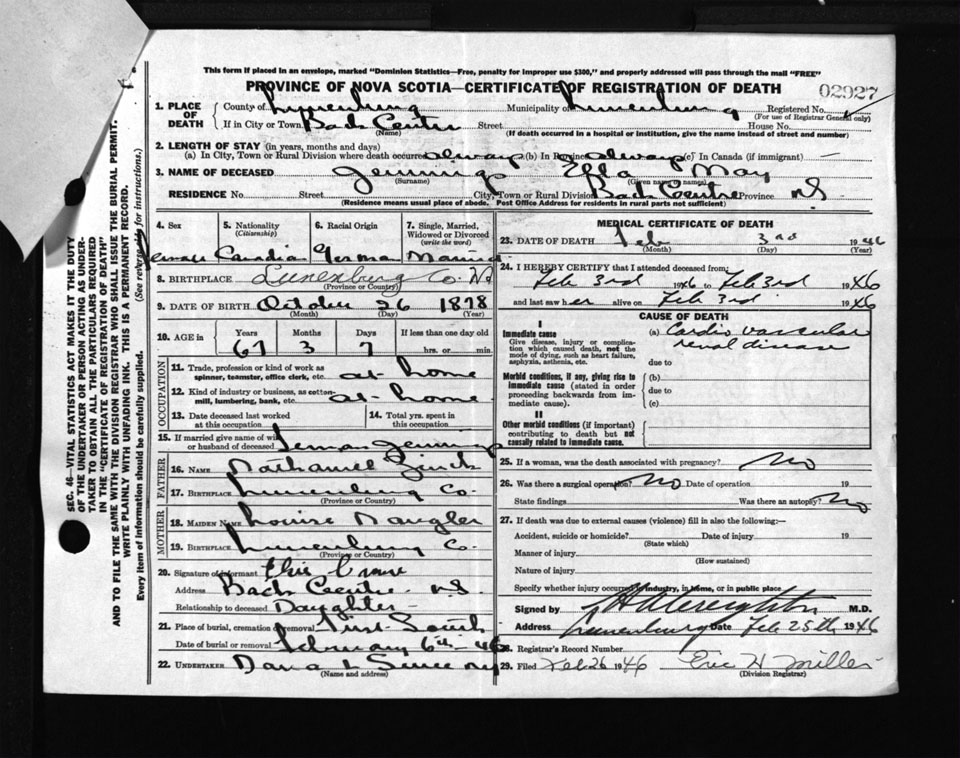 This form if placed in an envelope, marked "Dominion Statistics—Free, penalty for improper use $300," and properly addressed will pass through the mail "FREE"
PROVINCE OF NOVA SCOTIA—CERTIFICATE OF REGISTRATION OF DEATH
02927
1. PLACE OF DEATH County of Lunenburg Municipality of Lunenburg Registered No.
(For use of Registrar General only)
If in City or Town Street House No.
(Name) (If death occurred in a hospital or institution, give the name instead of street and number)
2. LENGTH OF STAY (in years, months and days)
(a) In City, Town or Rural Division where death occurred always (b) In Province always (c) In Canada (if immigrant) —
3. NAME OF DECEASED Jennings Ella May
(Surname) (Given name or names)
RESIDENCE No. Street City, Town or Rural Division Province N.S.
(Residence means usual place of abode. Post Office Address for residents in rural parts not sufficient)
4. Sex 5. Nationality (Citizenship) 6. Racial Origin 7. Single, Married, Widowed or Divorced (write the word)
Female Canadia German Married
8. BIRTHPLACE Lunenburg Co. N.S.
(Province or Country)
9. DATE OF BIRTH October 26 1878
(Month) (Day) (Year)
10. AGE in Years Months Days If less than one day old
67 3 7 hrs. or min.
OCCUPATION
11. Trade, profession or kind of work as spinner, teamster, office clerk, etc. at home
12. Kind of industry or business, as cotton-mill, lumbering, bank, etc. at home
13. Date deceased last worked at this occupation
14. Total yrs. spent in this occupation
15. If married give name of wife or husband of deceased Jennings
FATHER
16. NAME Nathaniel Zinck
17. BIRTHPLACE Lunenburg Co.
(Province or Country)
MOTHER
18. MAIDEN NAME Louise Naugler
19. BIRTHPLACE Lunenburg Co.
(Province or Country)
20. Signature of informant
Address Centre N.S.
Relationship to deceased Daughter
21. Place of burial, cremation or removal South
Date of burial or removal February 6th 46
22. UNDERTAKER
(Name and address)
MEDICAL CERTIFICATE OF DEATH
23. DATE OF DEATH Feb 3rd 1946
(Month) (Day) (Year)
24. I HEREBY CERTIFY that I attended deceased from
Feb 3rd 1946 to Feb 3rd 1946
and last saw her alive on Feb 3rd 1946
CAUSE OF DEATH
I
Immediate cause
Give disease, injury or complication which caused death, not the mode of dying, such as heart failure, asphyxia, asthenia, etc.
(a) Cardio vascular
renal disease
due to
Morbid conditions, if any, giving rise to immediate cause (stated in order proceeding backwards from immediate cause).
(b)
due to
(c)
II
Other morbid conditions (if important) contributing to death but not causally related to immediate cause.
25. If a woman, was the death associated with pregnancy? No
26. Was there a surgical operation? No Date of operation 19
State findings Was there an autopsy? No
27. If death was due to external causes (violence) fill in also the following:—
Accident, suicide or homicide? Date of injury 19
(State which)
Manner of injury
(How sustained)
Nature of injury
Specify whether injury occurred in industry, in home, or in public place
Signed by Creighton M.D.
Address Lunenburg Date Feb 25th 1946
28. Registrar's Record Number
29. Filed Feb 26 1946 Eric H Miller
(Division Registrar)
SEC. 46—VITAL STATISTICS ACT MAKES IT THE DUTY
OF THE UNDERTAKER OR PERSON ACTING AS UNDER-
TAKER TO OBTAIN ALL THE PARTICULARS REQUIRED
IN THE "CERTIFICATE OF REGISTRATION OF DEATH"
AND TO FILE THE SAME WITH THE DIVISION REGISTRAR WHO SHALL ISSUE THE BURIAL PERMIT.
WRITE PLAINLY WITH UNFADING INK. THIS IS A PERMANENT RECORD.
Every item of information should be carefully supplied. (See reverse side for instructions.)